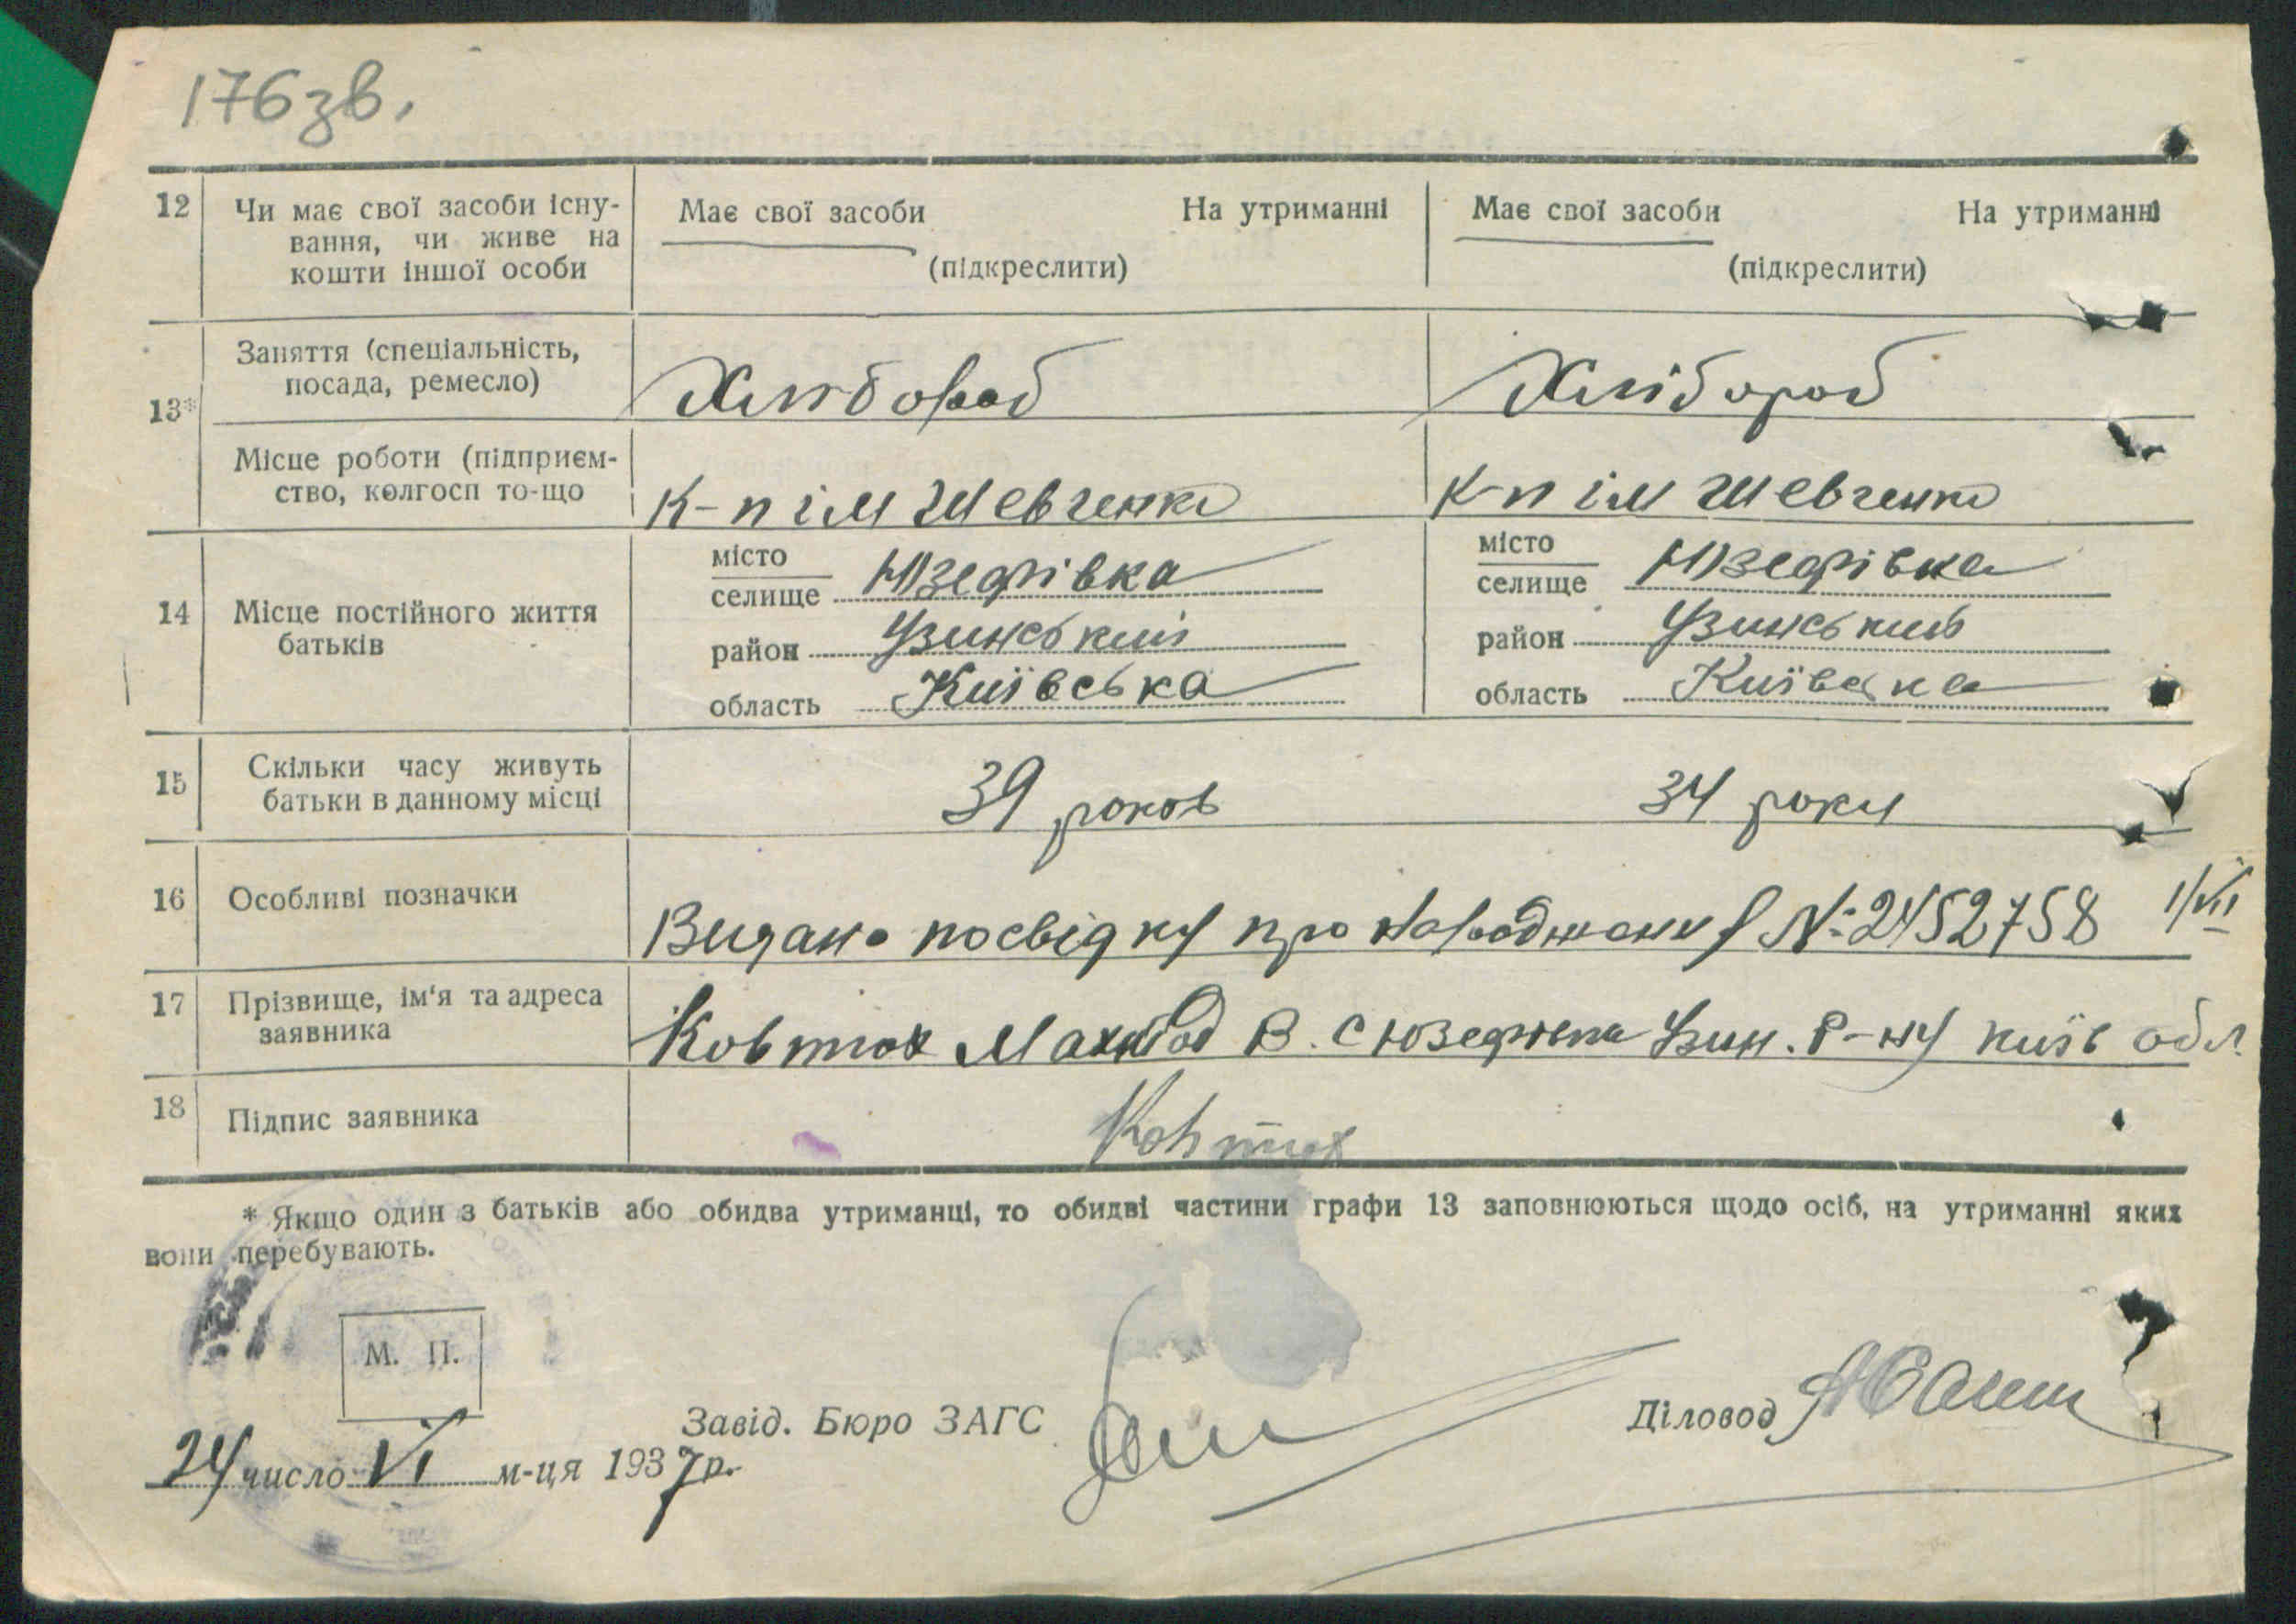 176 зв.
12 Чи має свої засоби існу- Має свої засоби На утриманні Має свої засоби На утриманні
вання, чи живе на
кошти іншої особи (підкреслити) (підкреслити)
Заняття (спеціальність,
посада, ремесло) Хлібороб Хлібороб
13*
Місце роботи (підприєм-
ство, колгосп то-що К-п ім Шевченко К-п ім Шевченко
14 Місце постійного життя
батьків
місто
селище Юзефівка
район Узинський
область Київська
місто
селище Юзефівка
район Узинський
область Київська
15 Скільки часу живуть
батьки в данному місці 39 років 34 роки
16 Особливі позначки Видано посвідку про народження № 2452758 1/VII
17 Прізвище, ім'я та адреса
заявника Ковтюх В. с Юзефівка Узин. р-ну Київ обл.
18 Підпис заявника Ковтюх
* Якщо один з батьків або обидва утриманці, то обидві частини графи 13 заповнюються щодо осіб, на утриманні яких
вони перебувають.
М. П.
Завід. Бюро ЗАГС
Діловод
24 число VI м-ця 1937 р.